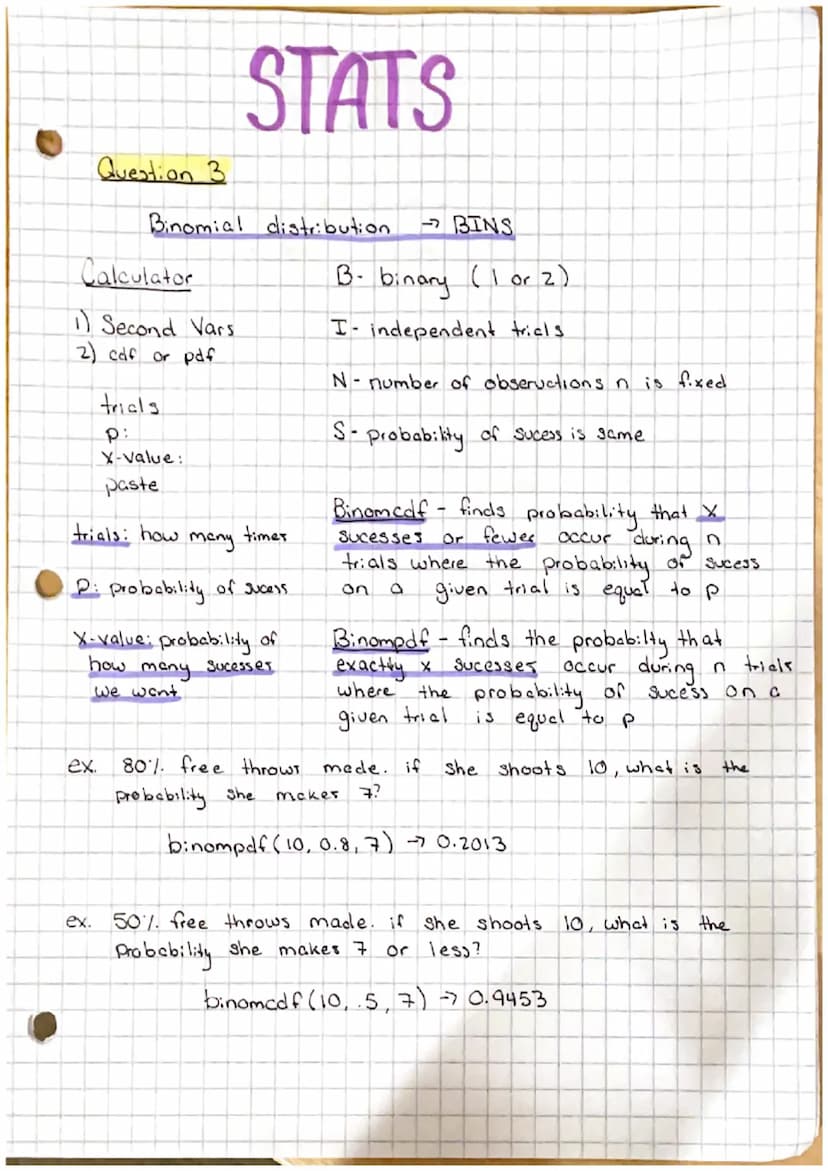 STATS
Question 3
Binomial distribution → BINS
Calculator
1) Second Vars
2) cdf or pdf
trials
p:
x-value:
paste
trials: how many times
P: probability of sucess
X-value: probability of
how many sucesses
we want
B- binary (1 or 2)
I- independent trials
N- number of observations n is fixed
S- probability of sucess is same
Binomcdf - finds probability that x
sucesses or fewer occur during n
trials where the probability of sucess
on a given trial is equal to p
Binompdf - finds the probabilty that
exactly x sucesses occur during n trials
where the probability of sucess on a
given trial is equal to p
ex. 80% free throws made. if she shoots 10, what is the
probability she makes 7?
binompdf(10, 0.8, 7) → 0.2013
ex. 50% free throws made. if she shoots 10, what is the
Probability she makes 7 or less?
binomcdf(10, .5, 7) → 0.9453